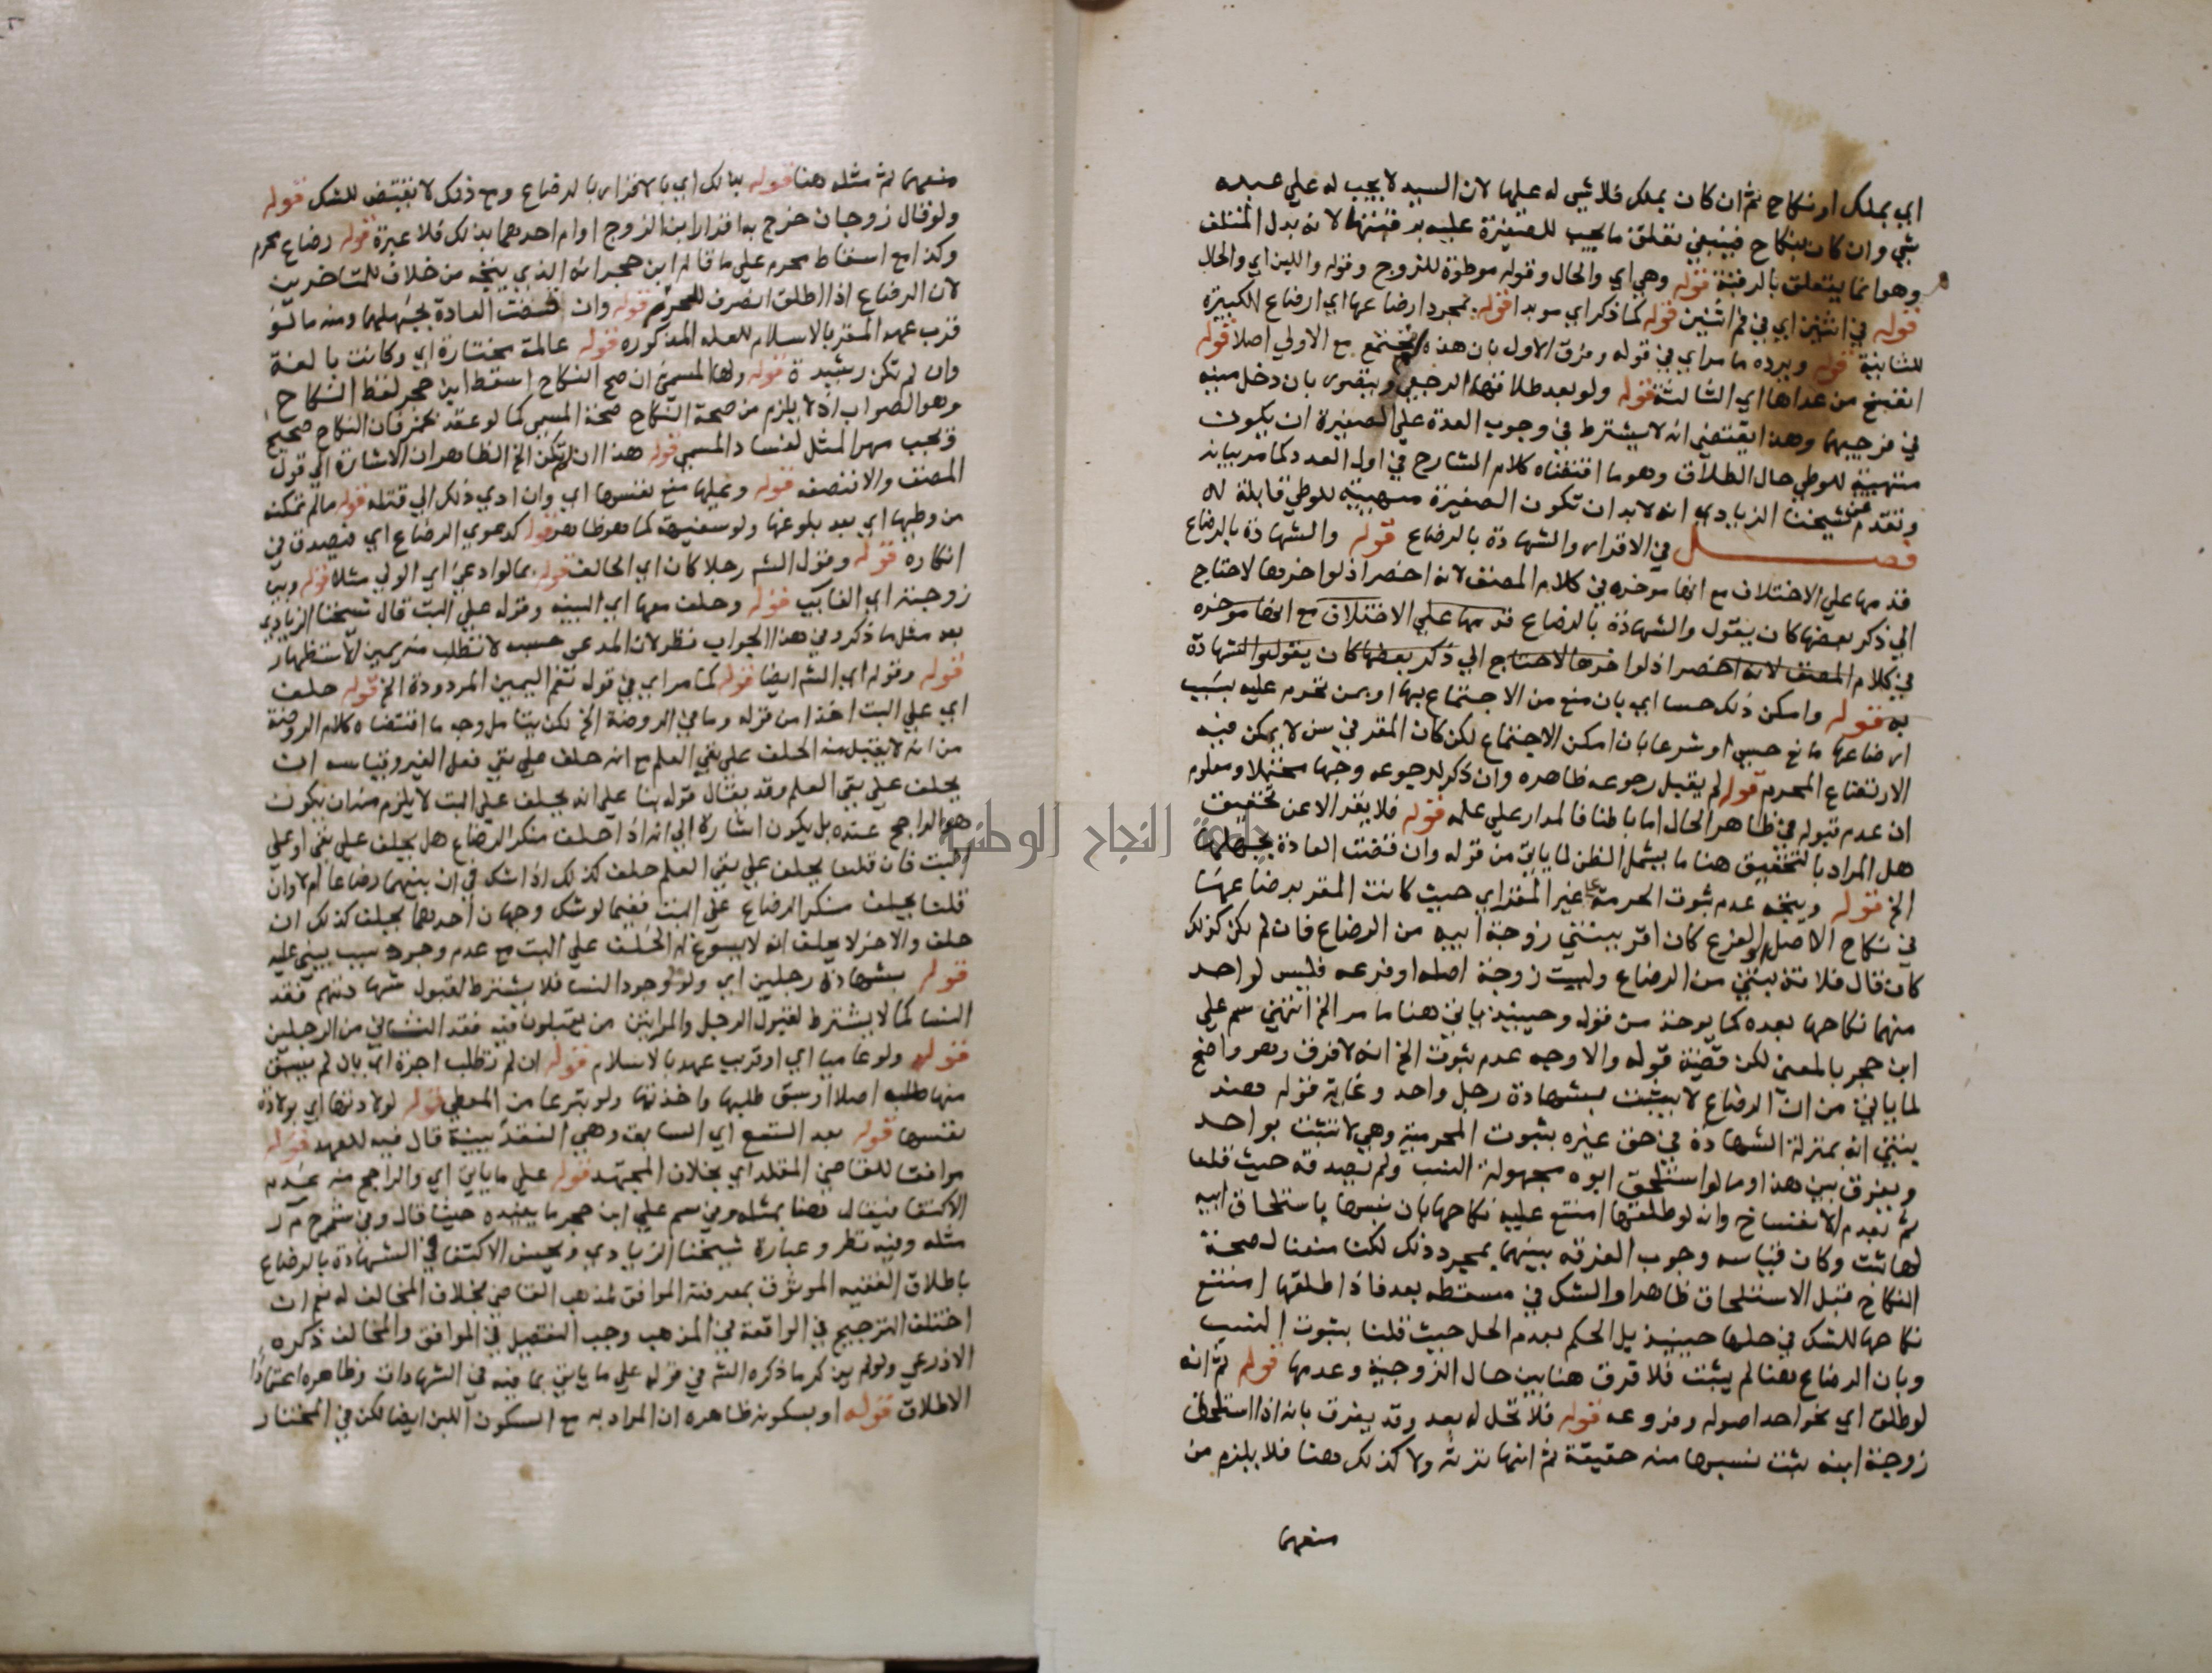 اي بملك او نكاح ثم ان كان بملك فلا شي له عليها لان السيد لا يجب له علي عبده
شي وان كان بنكاح فينبغي تعلق ما يجب للصغيرة عليه برقبتها لانه بدل المتلف
وهو انما يتعلق بالرقبة قوله وهي اي والحال وقوله موطؤة للزوج وقوله واللبن اي والحال
قوله في اثنين اي في ثم اثنين قوله كما ذكر اي موبدا قوله بمجرد ارضاعها اي ارضاع الكبيرة
للثانية قوله ويرده ما مر اي في قوله وفرق الاول بان هذه لم تجتمع مع الاولي اصلا قوله
انفسخ من عداها اي الثالثة قوله ولو بعد طلاقها الرجعي ويتصور بان دخل منيه
في فرجيهما وهذا يقتضي انه لا يشترط في وجوب العدة علي الصغيرة ان يكون
متهيئة للوطي حال الطلاق وهو ما اقتضاه كلام الشارح في اول العدد كما مر بيانه
وتقدم عن شيخنا الزيادي انه لا بد ان تكون الصغيرة متهيئة للوطي قابلة له
فصل في الاقرار والشهادة بالرضاع قوله والشهادة بالرضاع
قدمها علي الاختلاف مع انها موخره في كلام المصنف لانه اخصر اذ لو اخرها لاحتاج
الي ذكر بعضها كان يقول والشهادة بالرضاع قدمها علي الاختلاف مع انها موخره
في كلام المصنف لانه اخصر اذ لو اخرها لاحتاج الي ذكر بعضها كان يقول والشهادة
به قوله وامكن ذلك حسا اي بان منع من الاجتماع بها او بمن تحرم عليه بسبب
ارضاعها مانع حسي او شرعا بان امكن الاجتماع لكن كان المقر في سن لا يمكن فيه
الارتضاع المحرم قوله لم يقبل رجوعه ظاهره وان ذكر لرجوعه وجها محتملا ومعلوم
ان عدم قبوله في ظاهر الحال اما باطنا فالمدار علي علمه قوله فلا يقر الا عن تحقيق
هل المراد بالتحقيق هنا ما يشمل الظن لما ياتي من قوله وان قضت العادة بجهلهما
الخ قوله ويتجه عدم ثبوت الحرمة علي غير المقر اي حيث كانت المقر برضاعها
في نكاح الاصل او الفرع كان اقر ببنتي زوجة ابيه من الرضاع فان لم يكن كذلك
كان قال فلانة بنتي من الرضاع وليست زوجة اصله او فرعه فليس لواحد
منهما نكاحها بعده كما يوخذ من قوله وحينئذ ياتي هنا ما مر الخ انتهي سم علي
ابن حجر بالمعني لكن قضية قوله والاوجه عدم ثبوت الخ انه لا فرق وهو واضح
لما ياتي من ان الرضاع لا يثبت بشهادة رجل واحد وغاية قوله هند
بنتي انه بمنزلة الشهادة في حق غيره بثبوت المحرمية وهي لا تثبت بواحد
ويفرق بين هذا وما لو استلحق ابوه مجهولة النسب ولم يصدقه حيث قلنا
ثم بعدم الانفساخ وانه لو طلقها امتنع عليه نكاحها بان نسبها باستلحاق ابيه
لها ثبت وكان قياسه وجوب الفرقة بينهما بمجرد ذلك لكنا منعنا لصحة
النكاح قبل الاستلحاق ظاهرا والشك في مسقطه بعد فاذا طلقها امتنع
نكاحها للشك في حلها حينئذ بل الحكم بعدم الحل حيث قلنا بثبوت النسب
وبان الرضاع هنا لم يثبت فلا فرق هنا بين حال الزوجية وعدمها قوله ثم انه
لو طلق اي نحو احد اصوله وفروعه قوله فلا تحل له بعد وقد يفرق بانه اذا استلحق
زوجة ابنه ثبت نسبها منه حقيقة ثم انها ترثه ولا كذلك هنا فلا يلزم من
منعها
منعها ثم مثله هنا قوله بذلك اي بالاقرار بالرضاع ومع ذلك لا نقض للشك قوله
ولو قال زوجان خرج به اقرار ابن الزوج او ام احدهما بذلك فلا عبرة قوله رضاع محرم
وكذا مع اسقاط محرم علي ما قاله ابن حجر انه الذي يتجه من خلاف للمتاخرين
لان الرضاع اذا اطلق انصرف للمحرم قوله وان قضت العادة بجهلهما ومنه ما لو
قرب عهد المقر بالاسلام للعله المذكوره قوله عالمة مختارة اي وكانت بالغة
وان لم تكن رشيدة قوله ولها المسمي ان صح النكاح اسقط ابن حجر لفظ النكاح
وهو الصواب اذ لا يلزم من صحة النكاح صحة المسمي كما لو عقد بخمر فان النكاح صحيح
ويجب مهر المثل لفساد المسمي قوله هذا ان لم تكن الخ الظاهر ان الاشارة الي قول
المصنف والا فنصفه قوله وعليها منع نفسها اي وان ادي ذلك الي قتله قوله ما لم تمكنه
من وطيها اي بعد بلوغها ولو سفيهة كما هو ظاهر قوله كدعوي الرضاع اي فيصدق في
انكاره قوله وقول الشم رجلا كان اي الحالف قوله بما لو ادعي اي الولي مثلا قوله وبين
زوجته اي الغايب قوله وحلف معها اي البينه وقوله علي البت قال شيخنا الزيادي
بعد مثل ما ذكر وفي هذا الجواب نظر لان المدعي حسبه لا تطلب منه يمين الاستظهار
قوله وقوله اي الشم ايضا قوله كما مر اي في قوله نعم اليمين المردودة الخ قوله حلف
اي علي البت اخذا من قوله وما في الروضة الخ لكن يتامل وجه ما اقتضاه كلام الروضة
من انه لا يقبل منه الحلف علي نفي العلم مع انه حلف علي نفي فعل الغير وقياسه ان
يحلف علي نفي العلم وقد يقال قوله بنا علي انه يحلف علي البت لا يلزم منه ان يكون
هو الراجح عنده بل يكون اشارة الي انه اذا حلف منكر الرضاع هل يحلف علي نفي او علي
البت فان قلنا يحلف علي نفي العلم حلف كذلك اذا شك في ان بينهما رضاعا ام لا وان
قلنا يحلف منكر الرضاع علي البت ففيما لو شك وجهان احدهما يحلف كذلك ان
حلف والاخر لا يحلف انه لا يسوغ له الحلف علي البت مع عدم وجود سبب يبني عليه
قوله بشهادة رجلين اي ولو لوجود النسا فلا يشترط لقبول شهادتهم فقد
النسا كما لا يشترط لقبول الرجل والمراتين من يقبلون فيه فقد الثاني من الرجلين
قوله ولو عاميا اي او قريب عهد بالاسلام قوله ان لم تطلب اجرة اي بان لم يسبق
منها طلبه اصلا او سبق طلبها واخذتها ولو تبرعا من المعطي قوله لولادتها اي بولادة
نفسها قوله بعد التتبع اي السابق وهي النقدا ببينة قال فيه للعهد قوله
موافقا للقاضي المقلد اي بخلاف المجتهد قوله علي ما ياتي اي والراجح منه عدم
الاكتفا فيقال هنا بمثله وفي سم علي ابن حجر ما يفيده حيث قال وفي شرح م ر
مثله وفيه نظر وعبارة شيخنا الزيادي ويحسن الاكتفا في الشهادة بالرضاع
باطلاق الفقيه الموثوق بمعرفته الموافق لمذهب القاضي بخلاف المخالف له نعم ان
اختلف الترجيح في الواقعة في المذهب وجب التفصيل في الموافق والمخالف ذكره
الاذرعي ولو لم يذكر ما ذكره الشم في قوله علي ما ياتي بما فيه في الشهادات وظاهره اعتماد
الاطلاق قوله او بسكونه ظاهره ان المراد به مع السكون اللبن ايضا لكن في المختار
جامعة النجاح الوطنية